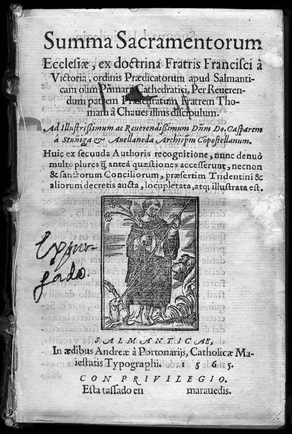 Summa Sacramentorum
Ecclesiæ, ex doctrina Fratris Francisci à
Victoria, ordinis Prædicatorum apud Salmanti-
cam olim Primarij Cathedratici, Per Reueren-
dum patrem Præsentatum fratrem Tho-
mam à Chaues illius discipulum.
Ad Illustrissimum ac Reuerendissimum Dñm Do. Gasparem
à Stuniga & Auellaneda Archiepm̃ Copostellanum.
Huic ex secunda Authoris recognitione, nunc denuò
multæ plures q̃ȝ antea quæstiones accesserunt, necnon
& sanctorum Conciliorum, præsertim Tridentini &
aliorum decretis aucta, locupletata, atqȝ illustrata est.
Expur-
gado.
SALMANTICAE,
In ædibus Andreæ à Portonarijs, Catholicæ Ma-
iestatis Typographi. 1565.
CON PRIVILEGIO.
Esta tassado en marauedis.